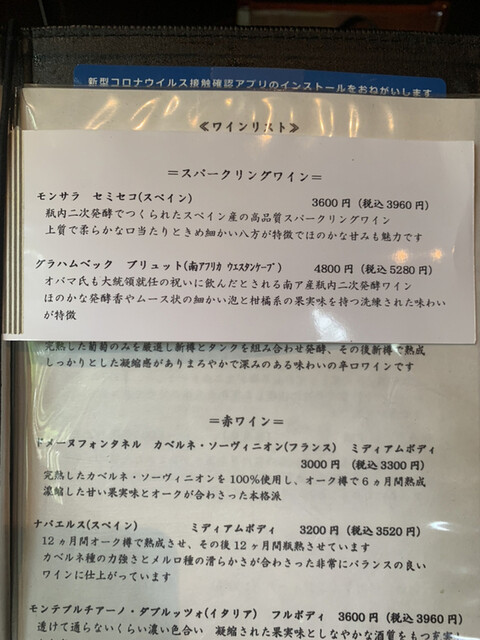 新型コロナウイルス接触確認アプリのインストールをおねがいします
≪ワインリスト≫
＝スパークリングワイン＝
モンサラ セミセコ(スペイン) 3600円（税込3960円）
瓶内二次発酵でつくられたスペイン産の高品質スパークリングワイン
上質で柔らかな口当たりときめ細かい八方が特徴でほのかな甘みも魅力です
グラハムベック ブリュット(南アフリカ ウエスタンケープ) 4800円（税込5280円）
オバマ氏も大統領就任の祝いに飲んだとされる南ア産瓶内二次発酵ワイン
ほのかな発酵香やムース状の細かい泡と柑橘系の果実味を持つ洗練された味わい
が特徴
完熟した葡萄のみを厳選し新樽とタンクを組み合わせ発酵、その後新樽で熟成
しっかりとした凝縮感がありまろやかで深みのある味わいの辛口ワインです
＝赤ワイン＝
ドメーヌフォンタネル カベルネ・ソーヴィニオン(フランス) ミディアムボディ
3000円（税込3300円）
完熟したカベルネ・ソーヴィニオンを100％使用し、オーク樽で6ヵ月間熟成
濃縮した甘い果実味とオークが合わさった本格派
ナバエルス(スペイン) ミディアムボディ 3200円（税込3520円）
12ヵ月間オーク樽で熟成させ、その後12ヶ月間瓶熟させています
カベルネ種の力強さとメルロ種の滑らかさが合わさった非常にバランスの良い
ワインに仕上がっています
モンテプルチアーノ・ダブルッツォ(イタリア) フルボディ 3600円（税込3960円）
透けて通らないくらい濃い色合い 凝縮された果実味としなやかな酒質をもつ充実